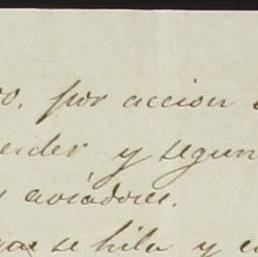 por accion
y segun
aviadores.
se hila y